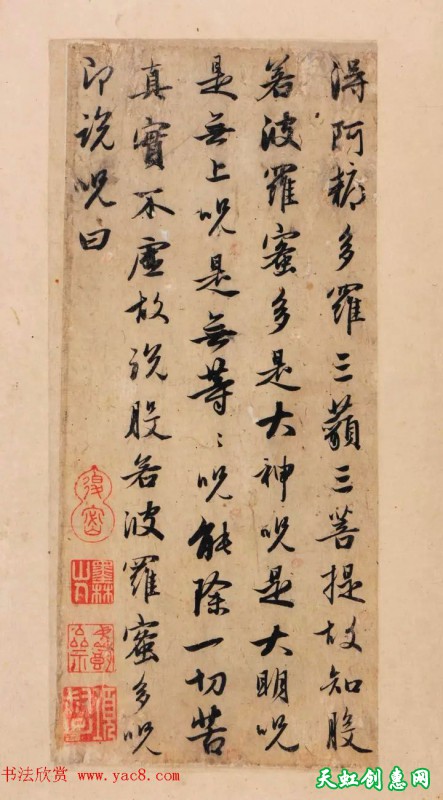 得阿耨多羅三藐三菩提故知般
若波羅蜜多是大神呪是大明呪
是無上呪是無等〻呪能除一切苦
真實不虛故說般若波羅蜜多呪
即說呪曰
書法欣赏 www.yac8.com
天虹创惠网